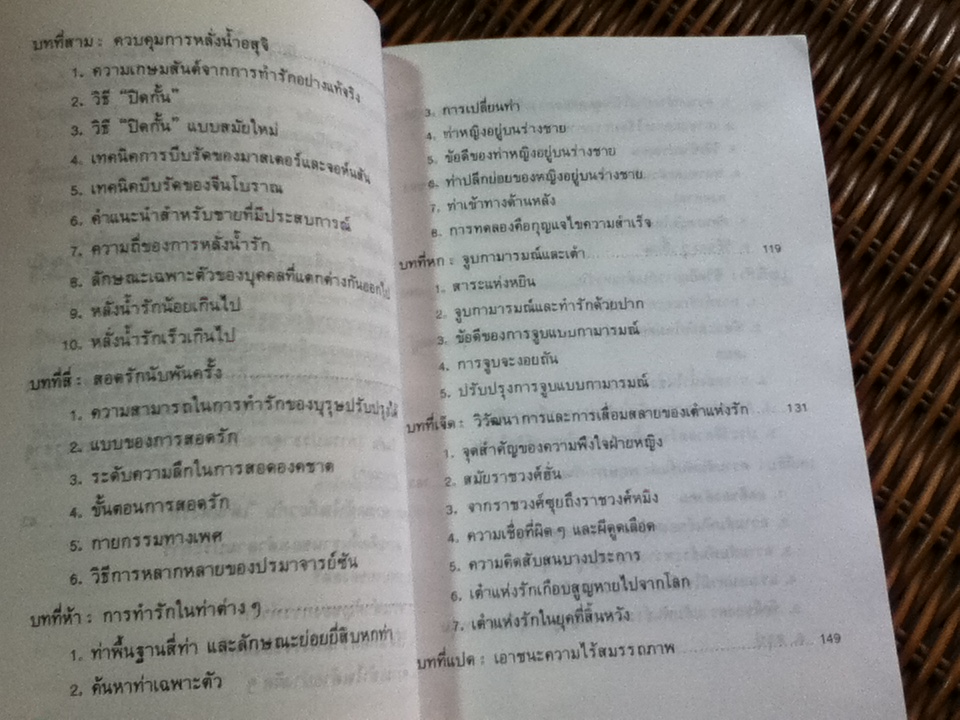 บทที่สาม : ควบคุมการหลั่งน้ำอสุจิ
1. ความเกษมสันต์จากการทำรักอย่างแท้จริง
2. วิธี “ปิดกั้น”
3. วิธี “ปิดกั้น” แบบสมัยใหม่
4. เทคนิคการบีบรัดของมาสเตอร์และจอห์นสัน
5. เทคนิคบีบรัดของจีนโบราณ
6. คำแนะนำสำหรับชายที่มีประสบการณ์
7. ความถี่ของการหลั่งน้ำรัก
8. ลักษณะเฉพาะตัวของบุคคลที่แตกต่างกันออกไป
9. หลั่งน้ำรักน้อยเกินไป
10. หลั่งน้ำรักเร็วเกินไป
บทที่สี่ : สอดรักนับพันครั้ง
1. ความสามารถในการทำรักของบุรุษปรับปรุงได้
2. แบบของการสอดรัก
3. ระดับความลึกในการสอดองคชาต
4. ขั้นตอนการสอดรัก
5. กายกรรมทางเพศ
6. วิธีการหลากหลายของปรมาจารย์ซัน
บทที่ห้า : การทำรักในท่าต่าง ๆ
1. ท่าพื้นฐานสี่ท่า และลักษณะย่อยยี่สิบหกท่า
2. ค้นหาท่าเฉพาะตัว
3. การเปลี่ยนท่า
4. ท่าหญิงอยู่บนร่างชาย
5. ข้อดีของท่าหญิงอยู่บนร่างชาย
6. ท่าปลีกย่อยของหญิงอยู่บนร่างชาย
7. ท่าเข้าทางด้านหลัง
8. การทดลองคือกุญแจไขความสำเร็จ
บทที่หก : จูบกามารมณ์และเต๋า 119
1. สาระแห่งหยิน
2. จูบกามารมณ์และทำรักด้วยปาก
3. ข้อดีของการจูบแบบกามารมณ์
4. การจูบจะงอยถัน
5. ปรับปรุงการจูบแบบกามารมณ์
บทที่เจ็ด : วิวัฒนาการและการเสื่อมสลายของเต๋าแห่งรัก 131
1. จุดสำคัญของความพึงใจฝ่ายหญิง
2. สมัยราชวงศ์ฮั่น
3. จากราชวงศ์ซุยถึงราชวงศ์หมิง
4. ความเชื่อที่ผิด ๆ และผีดูดเลือด
5. ความคิดสับสนบางประการ
6. เต๋าแห่งรักเกือบสูญหายไปจากโลก
7. เต๋าแห่งรักในยุคที่สิ้นหวัง
บทที่แปด : เอาชนะความไร้สมรรถภาพ 149